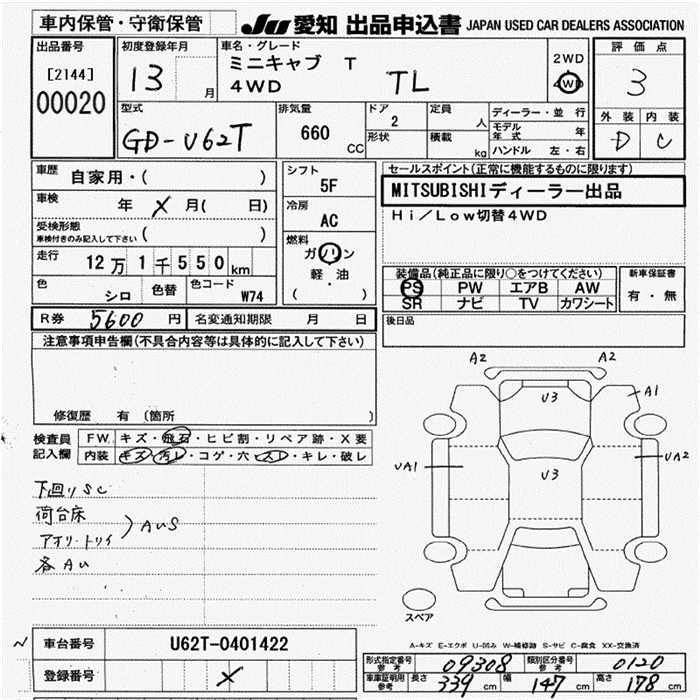 車内保管・守衛保管
JU 愛知 出品申込書 JAPAN USED CAR DEALERS ASSOCIATION
出品番号
[2144]
00020
初度登録年月
13 月
車名・グレード
ミニキャブ T
4WD TL
2WD
4WD
評価点
3
外装 内装
D C
型式
GD-U62T
排気量
660 CC
ドア
2
形状
定員
人
積載
kg
ディーラー・並行
モデル年式 年
ハンドル 左・右
車歴 自家用・( )
車検 年 X 月( 日)
受検形態
車検付きのみ記入して下さい ( )
走行 12万1千550km
色 シロ 色替 色コード W74
シフト
5F
冷房
AC
燃料
ガソリン
軽・油
( )
セールスポイント(正常に機能するものに限ります)
MITSUBISHIディーラー出品
Hi/Low切替4WD
装備品(純正品に限り○をつけてください)
PS PW エアB AW
SR ナビ TV カワシート
新車保証書
有・無
R券 5600 円 名変通知期限 月 日
後日品
注意事項申告欄(不具合内容等は具体的に記入して下さい)
修復歴 有 (箇所 )
検査員記入欄
FW キズ・飛石・ヒビ割・リペア跡・X要
内装 キズ・汚レ・コゲ・穴・スレ・キレ・破レ
下回りSC
荷台床
アオリ・トリイ
AUS
各AU
A2 A2
U3 A1
UA1 U3 UA2
スペア
A-キズ E-エクボ U-凹み W-補修跡 S-サビ C-腐食 XX-交換済
車台番号 U62T-0401422
登録番号 X
形式指定番号 参考 09308 類別区分番号 参考 0120
車庫証明用 参考 長さ 339 cm 幅 147 cm 高さ 178 cm